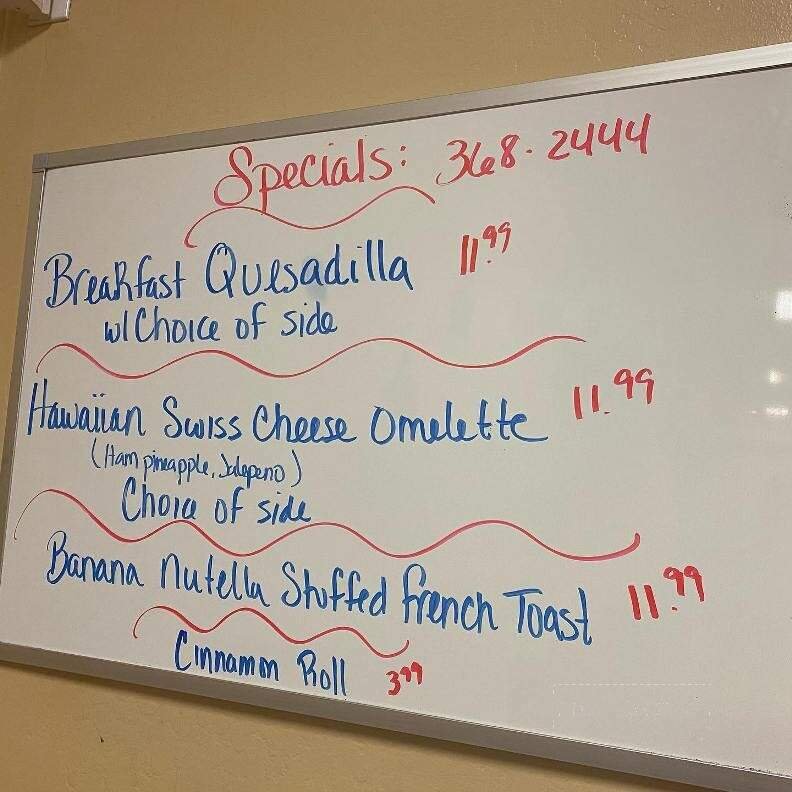 Specials: 368-2444
Breakfast Quesadilla 11.99
w/ Choice of side
Hawaiian Swiss Cheese Omelette 11.99
(Ham pineapple, Jalepeno)
Choice of side
Banana Nutella Stuffed French Toast 11.99
Cinnamon Roll 3.99